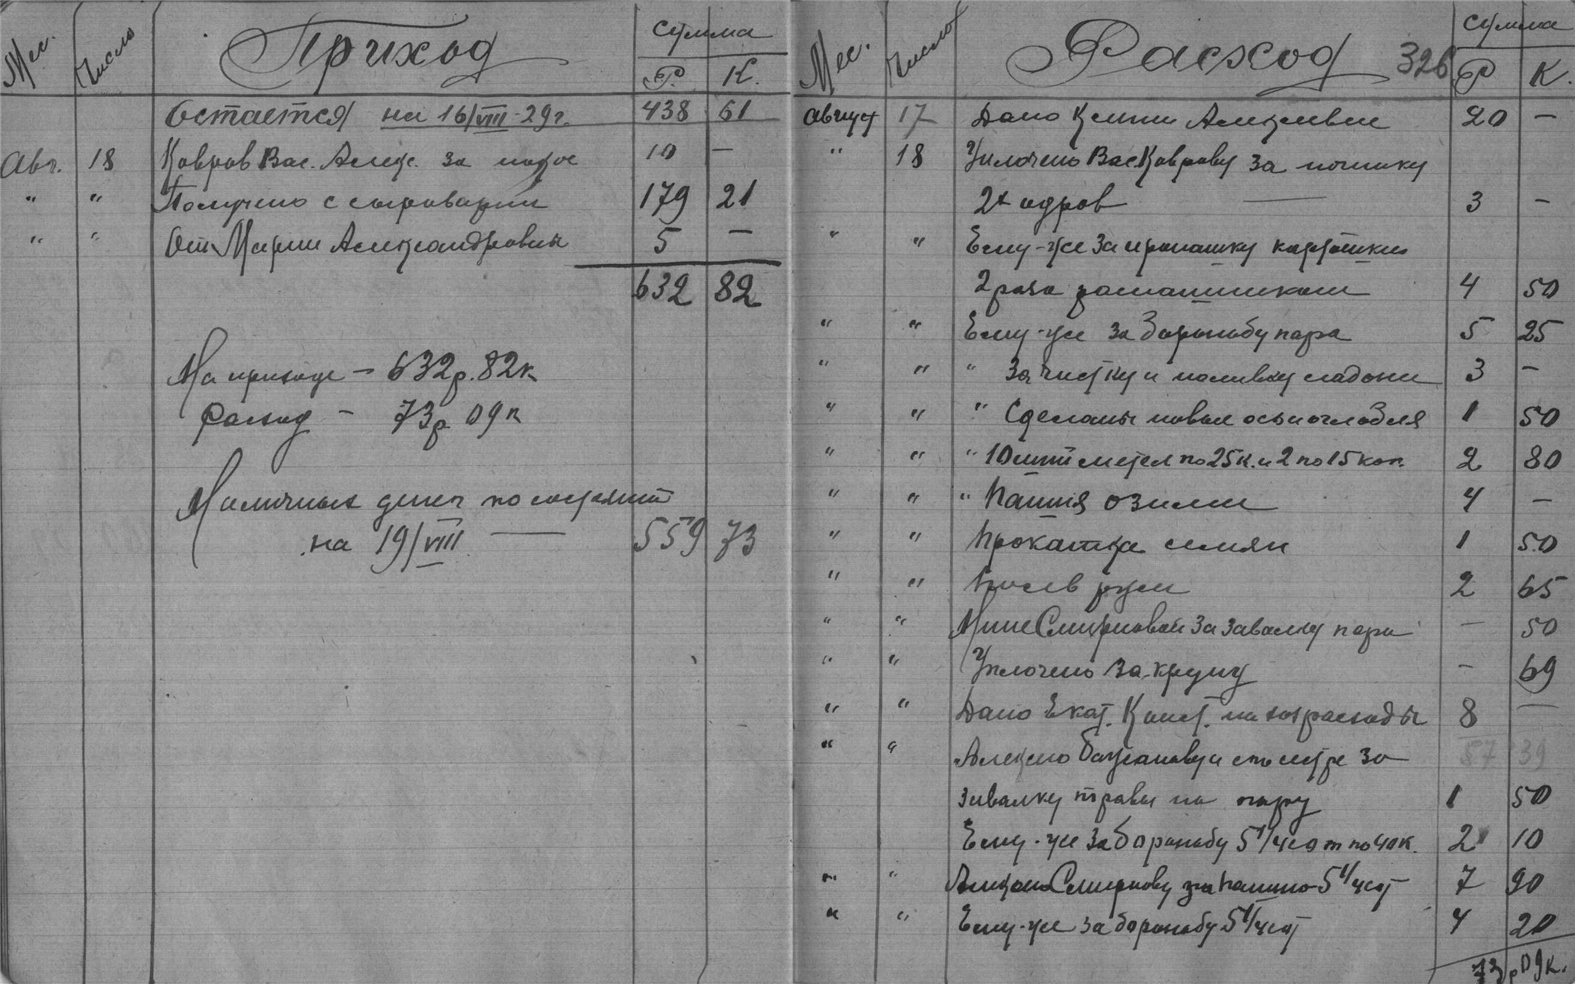 Мес. Число Приход сумма Р. К.
Остается на 16/VIII-29г. 438 61
Авг. 18 Ковров Вас. Алек. за 10 —
" " Получено с сыроварни 179 21
" " От Марии Александровны 5 —
632 82
На приходе — 632р. 82к
Расход — 73р 09к
Наличных денег по
на 19/VIII — 559 73
Мес. Число Расход 326 сумма Р К.
Август 17 Дано Алексеевне 20 —
" 18 Уплочено Вас. Коврову за починку
2х одров — 3 —
" " Ему-же за пропашку картошки
2 раза 4 50
" " Ему-же за бороньбу пара 5 25
" " " За чистку и поливку 3 —
" " " Сделаны новые ось и оглобля 1 50
" " " 10 штук метел по 25к. и 2 по 15 коп. 2 80
" " " Пашня озими 4 —
" " Прокатка семян 1 50
" " Посев ржи 2 65
" " Смирновой за завалку пара — 50
" " Уплочено за крупу — 69
" " Дано Екат. Конст. на хозрасходы 8 —
" " и сестре за 87 39
завалку травы на пару 1 50
Ему-же за бороньбу 5 1/4 сот по 40к. 2 10
" " Смирнову за пашню 5 1/4 сот 7 90
" " Ему-же за бороньбу 5 1/4 сот 4 20
73р 09к.